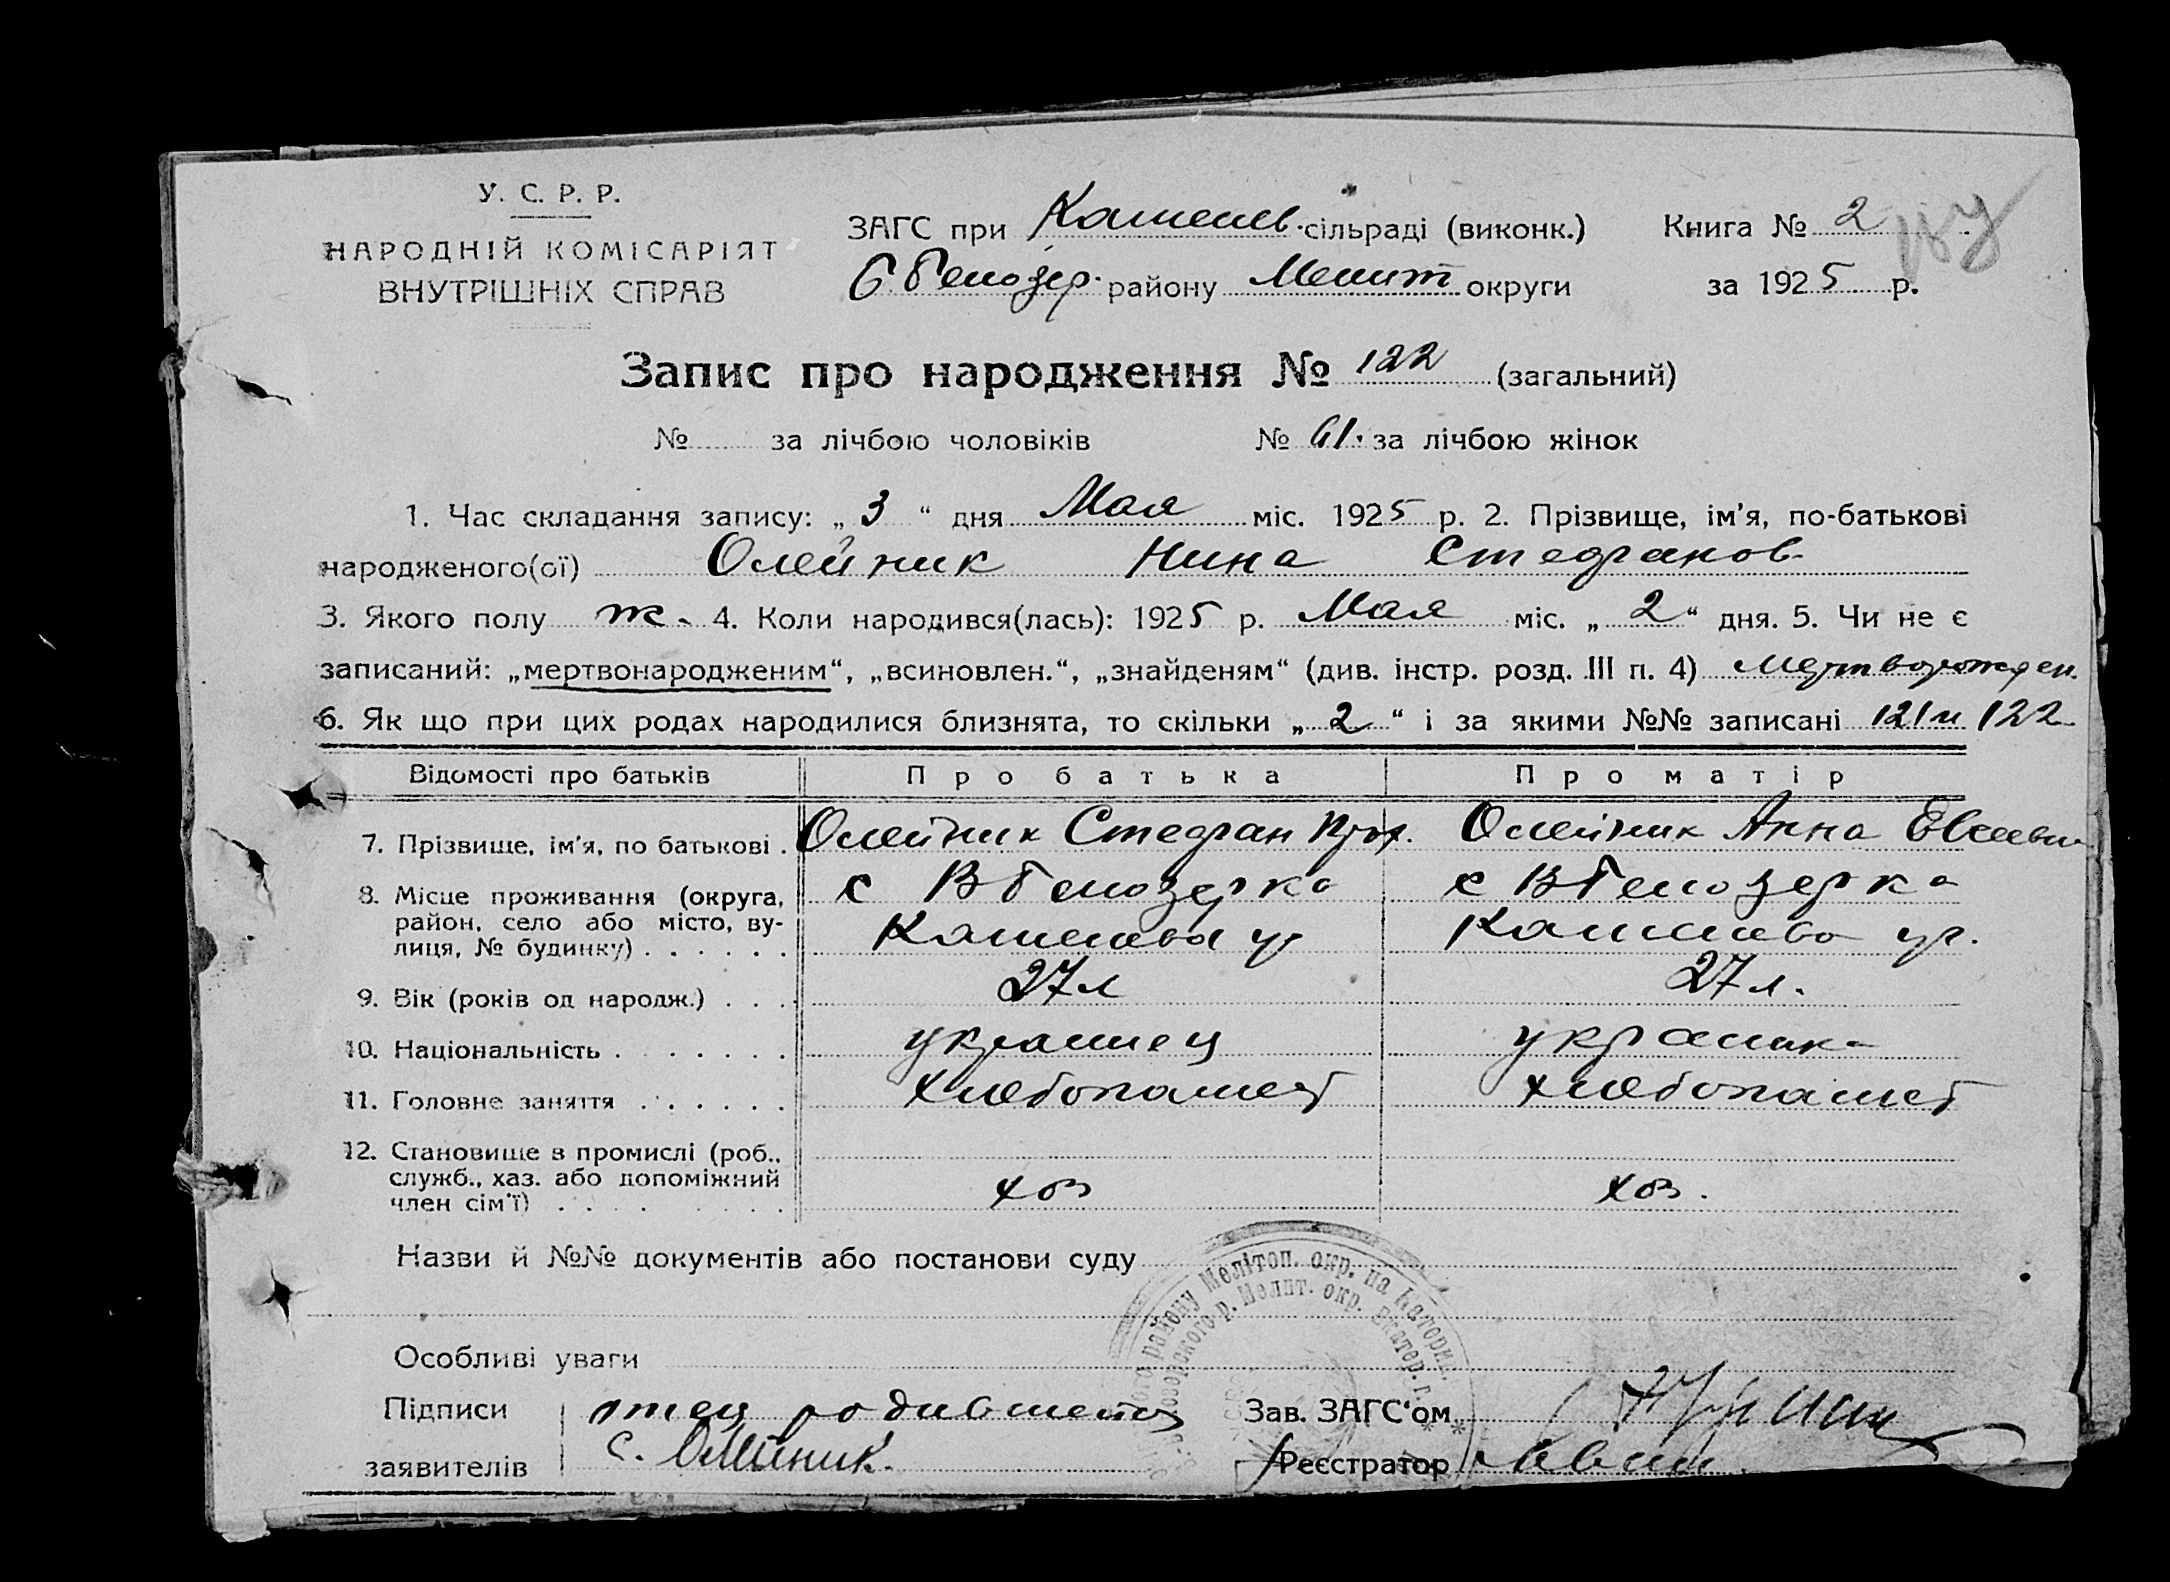 У. С. Р. Р.
НАРОДНІЙ КОМІСАРІЯТ
ВНУТРІШНІХ СПРАВ
ЗАГС при сільраді (виконк.)
району Мелит округи
Книга № 2
за 1925 р.
Запис про народження № 122 (загальний)
№ за лічбою чоловіків № 61. за лічбою жінок
1. Час складання запису: „ 3 “ дня Мая міс. 1925 р. 2. Прізвище, ім'я, по-батькові
народженого(ої) Олейник Нина Стефанов
3. Якого полу ж. 4. Коли народився(лась): 1925 р. Мая міс. „ 2 “ дня. 5. Чи не є
записаний: „мертвонародженим“, „всиновлен.“, „знайденям“ (див. інстр. розд. III п. 4) Мертворожден.
6. Як що при цих родах народилися близнята, то скільки „ 2 “ і за якими №№ записані 121 и 122
Відомості про батьків Про батька Про матір
7. Прізвище, ім'я, по батькові . Олейник Стефан Олейник Анна
8. Місце проживання (округа, с В Белозерка с В Белозерка
район, село або місто, ву-
лиця, № будинку) . . . . . .
9. Вік (років од народж.) . . . 27 л 27 л.
10. Національність . . . . . . . украинец украинка
11. Головне заняття . . . . . . хлебопашест хлебопашест
12. Становище в промислі (роб.,
служб., хаз. або допоміжний хоз хоз.
член сім'ї) . . . . . . . .
Назви й №№ документів або постанови суду
району Мелітоп. окр. на Катерин.
р. Мелит. окр. Екатер. г.
Особливі уваги
Підписи отец родившейся Зав. ЗАГС‘ом
заявителів С. Олейник. Реєстратор